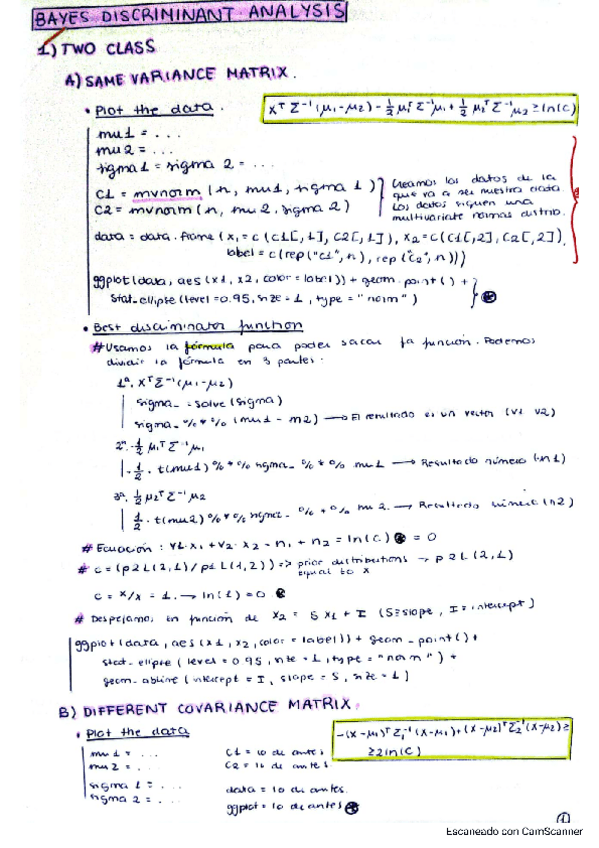 BAYES DISCRIMINANT ANALYSIS
1) TWO CLASS
A) SAME VARIANCE MATRIX.
• Plot the data.
X^T Σ^-1 (μ1-μ2) - 1/2 μ1^T Σ^-1 μ1 + 1/2 μ2^T Σ^-1 μ2 ≥ ln(c)
mu1 = ...
mu2 = ...
sigma1 = sigma2 = ...
C1 = mvnorm (n, mu1, sigma 1)
C2 = mvnorm (n, mu2, sigma 2)
Creamos los datos de la
que va a ser nuestra
Los datos siguen una
multivariate normal distrib.
data = data.frame (x1 = c(c1[,1], c2[,1]), x2 = c(c1[,2], c2[,2]),
label = c(rep("c1", n), rep("c2", n)))
ggplot (data, aes (x1, x2, color = label)) + geom_point () +
stat_ellipse (level = 0.95, size = 1, type = "norm")
• Best discriminator function
# Usamos la fórmula para poder sacar la función. Podemos
dividir la fórmula en 3 partes:
1ª. X^T Σ^-1 (μ1-μ2)
sigma_ = solve (sigma)
sigma_ %*% (mu1 - m2) → El resultado es un vector (v1 v2)
2ª. -1/2 μ1^T Σ^-1 μ1
-1/2 · t(mu1) %*% sigma_ %*% mu1 → Resultado número (n1)
3ª. 1/2 μ2^T Σ^-1 μ2
1/2 · t(mu2) %*% sigma_ %*% mu2. → Resultado número (n2)
# Ecuación: v1·x1 + v2·x2 - n1 + n2 = ln(c) = 0
# c = (p2 L(2,1) / p1 L(1,2)) => prior distributions → p2 L(2,1)
equal to x
c = x/x = 1. → ln(1) = 0
# Despejamos en función de x2 = S x1 + I (S=slope, I=intercept)
ggplot (data, aes (x1, x2, color = label)) + geom_point() +
stat_ellipse (level = 0.95, size = 1, type = "norm") +
geom_abline (intercept = I, slope = S, size = 1)
B) DIFFERENT COVARIANCE MATRIX.
• Plot the data
-(X-μ1)^T Σ1^-1 (X-μ1) + (X-μ2)^T Σ2^-1 (X-μ2) ≥
≥ 2 ln(c)
mu1 = ...
mu2 = ...
sigma1 = ...
sigma2 = ...
C1 = lo de antes
C2 = lo de antes
data = lo de antes.
ggplot = lo de antes
1
Escaneado con CamScanner